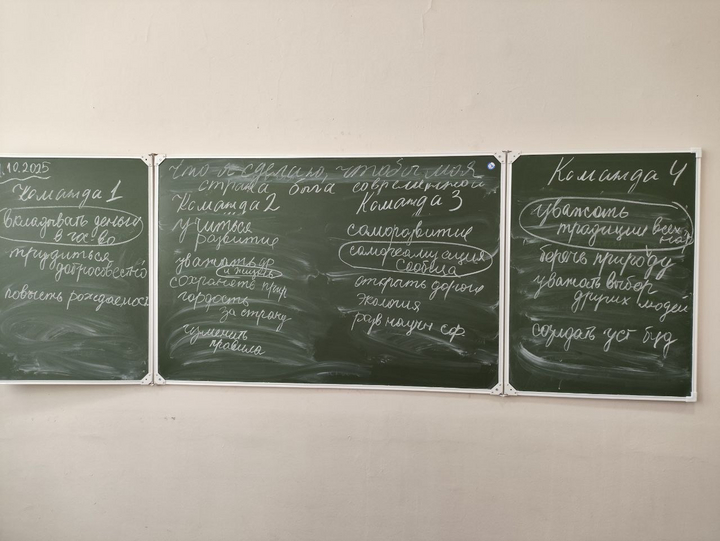 .10.2025
Что я сделаю, чтобы моя
страна была современной
Команда 1
вкладывать деньги
трудиться
добросовестно
повысть рождаемос
Команда 2
учиться
развитие
уважать
и жизнь
сохранять прир
гордость
за страну
изменить
правила
Команда 3
саморазвитие
самореализация
сообща
открыть дороги
экология
разв научн сф
Команда 4
уважать
традиции всех
нар
беречь природу
уважать выбор
других людей
создать уст буд